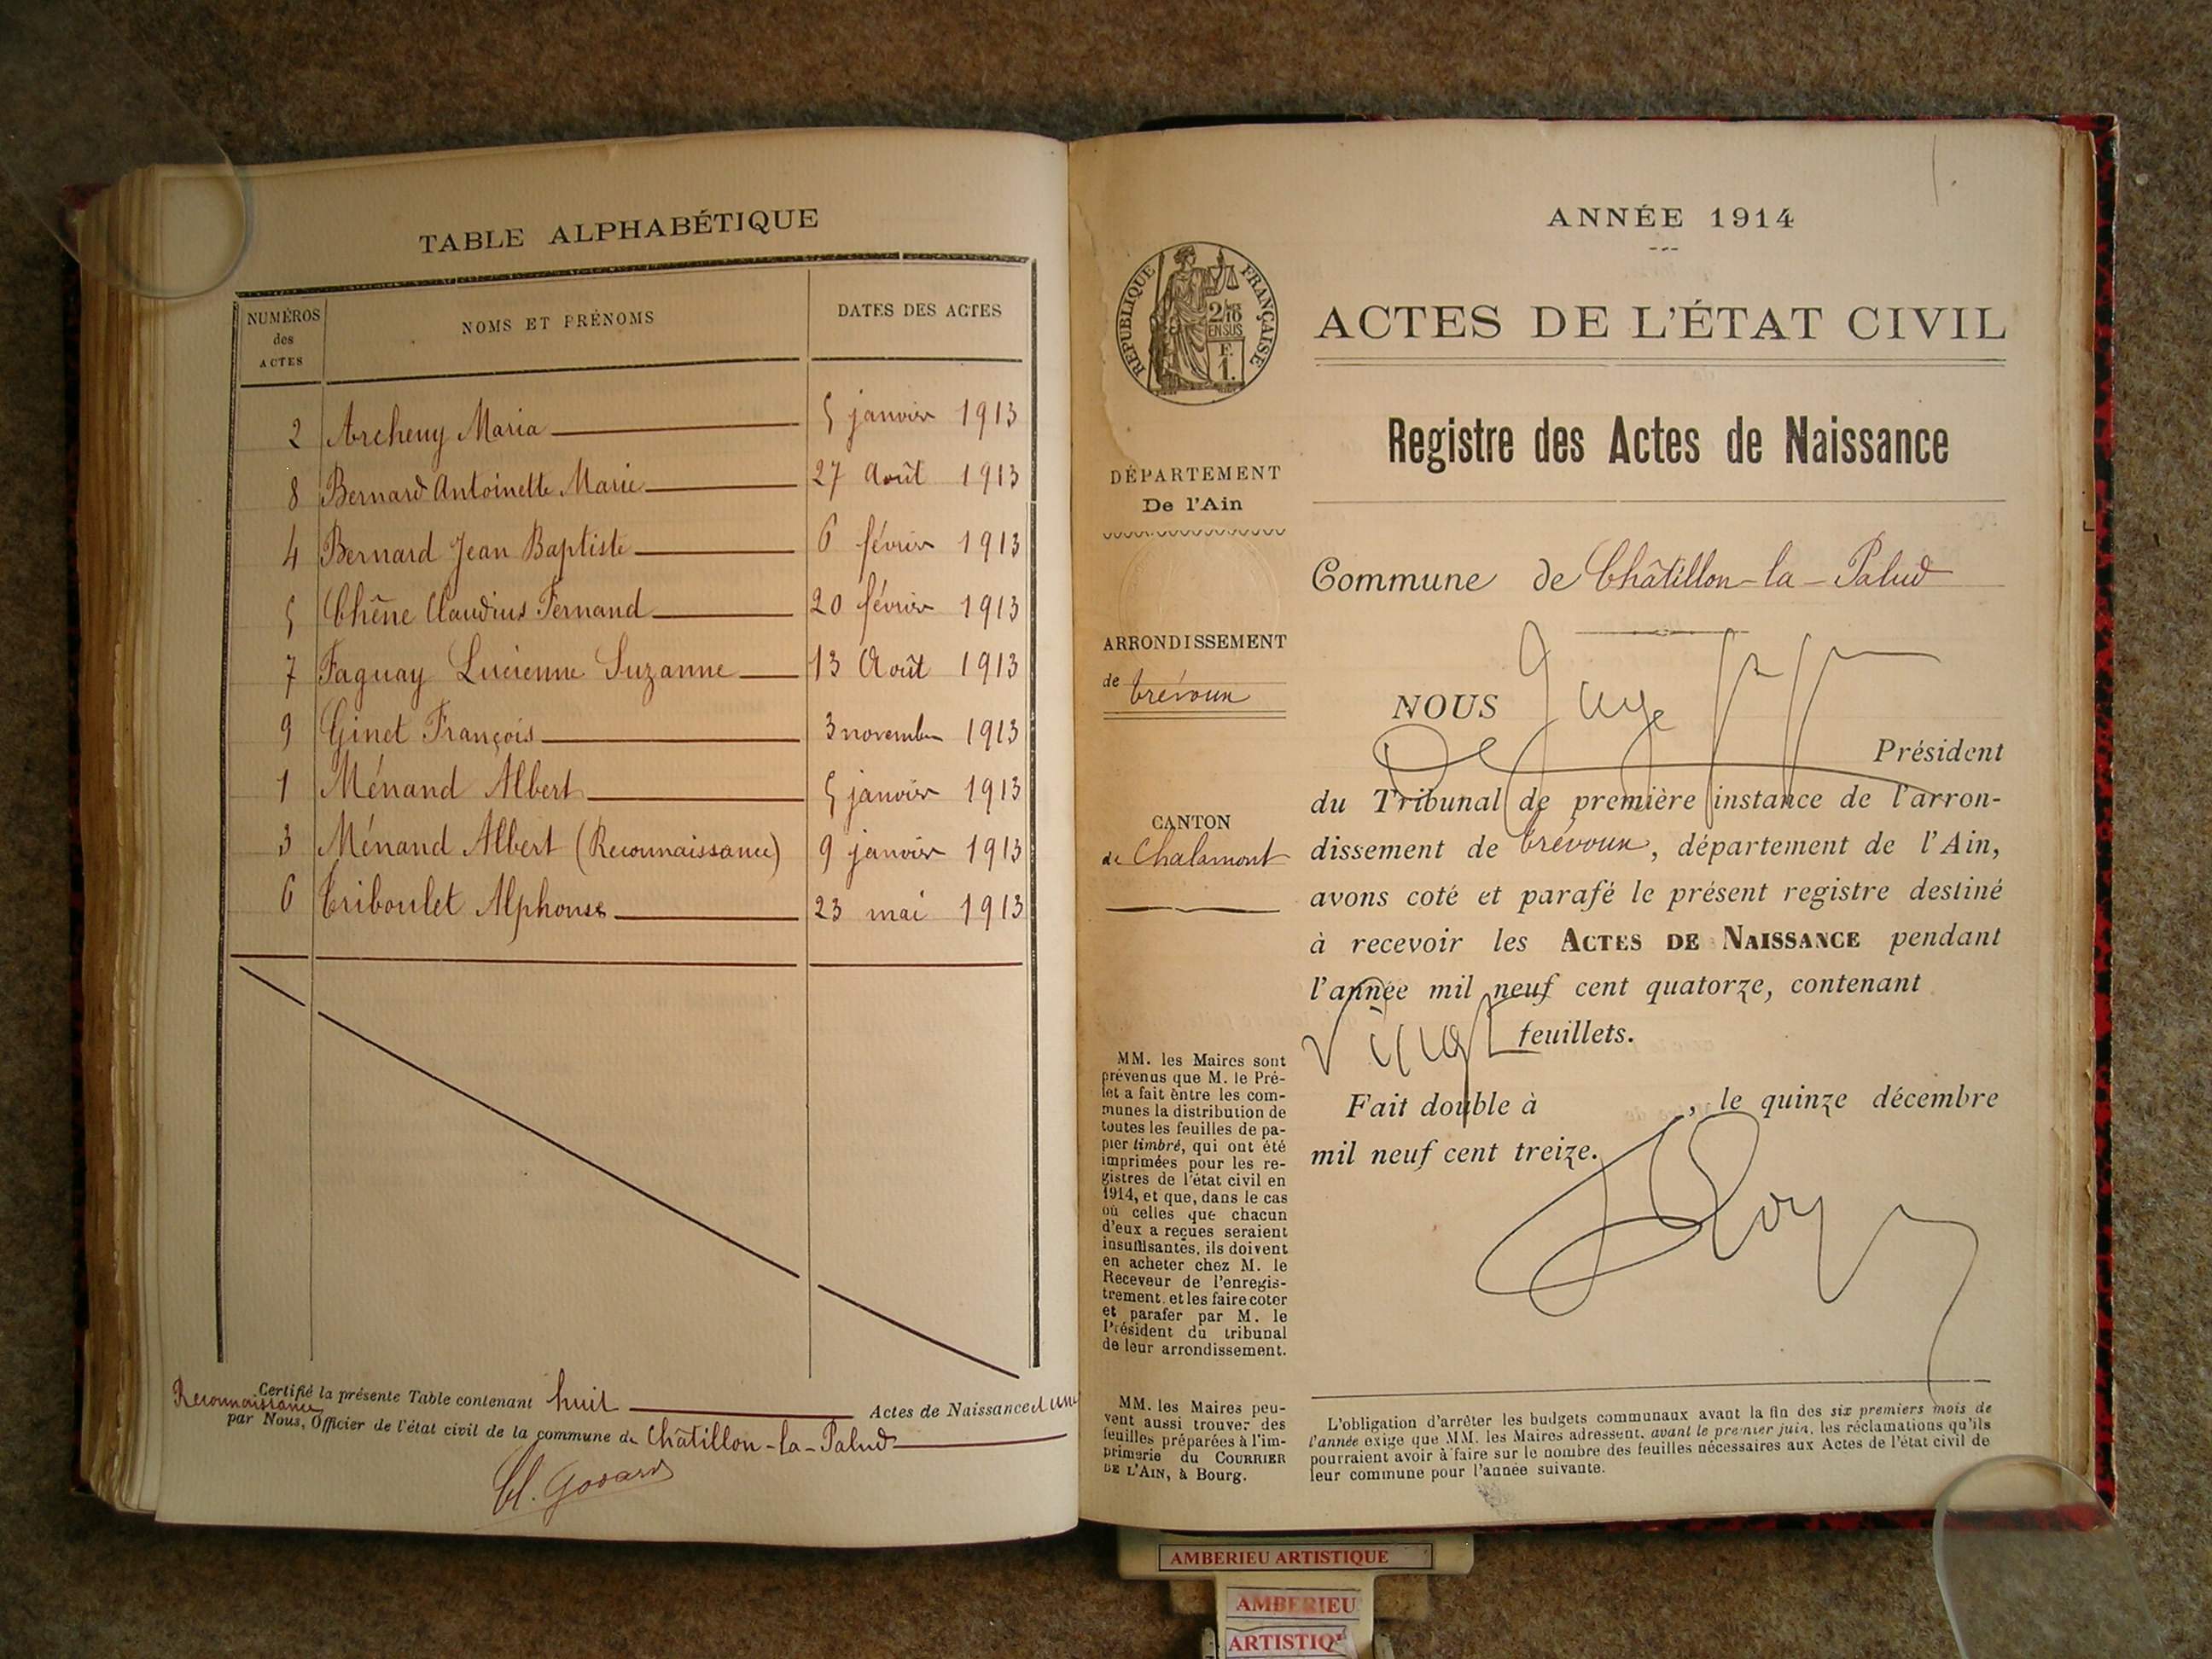 TABLE ALPHABÉTIQUE
NUMÉROS des ACTES NOMS ET PRÉNOMS DATES DES ACTES
2 Archeny Maria 5 janvier 1913
8 Bernard Antoinette Marie 27 Août 1913
4 Bernard Jean Baptiste 6 février 1913
5 Chêne Claudius Fernand 20 février 1913
7 Faguay Lucienne Suzanne 13 Août 1913
9 Ginet François 3 novembre 1913
1 Ménand Albert 5 janvier 1913
3 Ménand Albert (Reconnaissance) 9 janvier 1913
6 Triboulet Alphonse 23 mai 1913
Certifié la présente Table contenant huit Actes de Naissance et une
Reconnaissance
par Nous, Officier de l'état civil de la commune de Châtillon-la-Palud
Cl. Godard
ANNÉE 1914
RÉPUBLIQUE FRANÇAISE
2/10
EN SUS
F.
1.
ACTES DE L'ÉTAT CIVIL
Registre des Actes de Naissance
DÉPARTEMENT
De l'Ain
ARRONDISSEMENT
de Trévoux
CANTON
de Chalamont
MM. les Maires sont
prévenus que M. le Pré-
fet a fait entre les com-
munes la distribution de
toutes les feuilles de pa-
pier timbré, qui ont été
imprimées pour les re-
gistres de l'état civil en
1914, et que, dans le cas
où celles que chacun
d'eux a reçues seraient
insuffisantes, ils doivent
en acheter chez M. le
Receveur de l'enregis-
trement, et les faire coter
et parafer par M. le
Président du tribunal
de leur arrondissement.
MM. les Maires peu-
vent aussi trouver des
feuilles préparées à l'im-
primerie du COURRIER
DE L'AIN, à Bourg.
Commune de Châtillon-la-Palud
NOUS Juge
De Président
du Tribunal de première instance de l'arron-
dissement de Trévoux, département de l'Ain,
avons coté et parafé le présent registre destiné
à recevoir les ACTES DE NAISSANCE pendant
l'année mil neuf cent quatorze, contenant
Vingt feuillets.
Fait double à , le quinze décembre
mil neuf cent treize.
L'obligation d'arrêter les budgets communaux avant la fin des six premiers mois de
l'année exige que MM. les Maires adressent, avant le premier juin, les réclamations qu'ils
pourraient avoir à faire sur le nombre des feuilles nécessaires aux Actes de l'état civil de
leur commune pour l'année suivante.
AMBERIEU ARTISTIQUE
AMBERIEU
ARTISTIQ